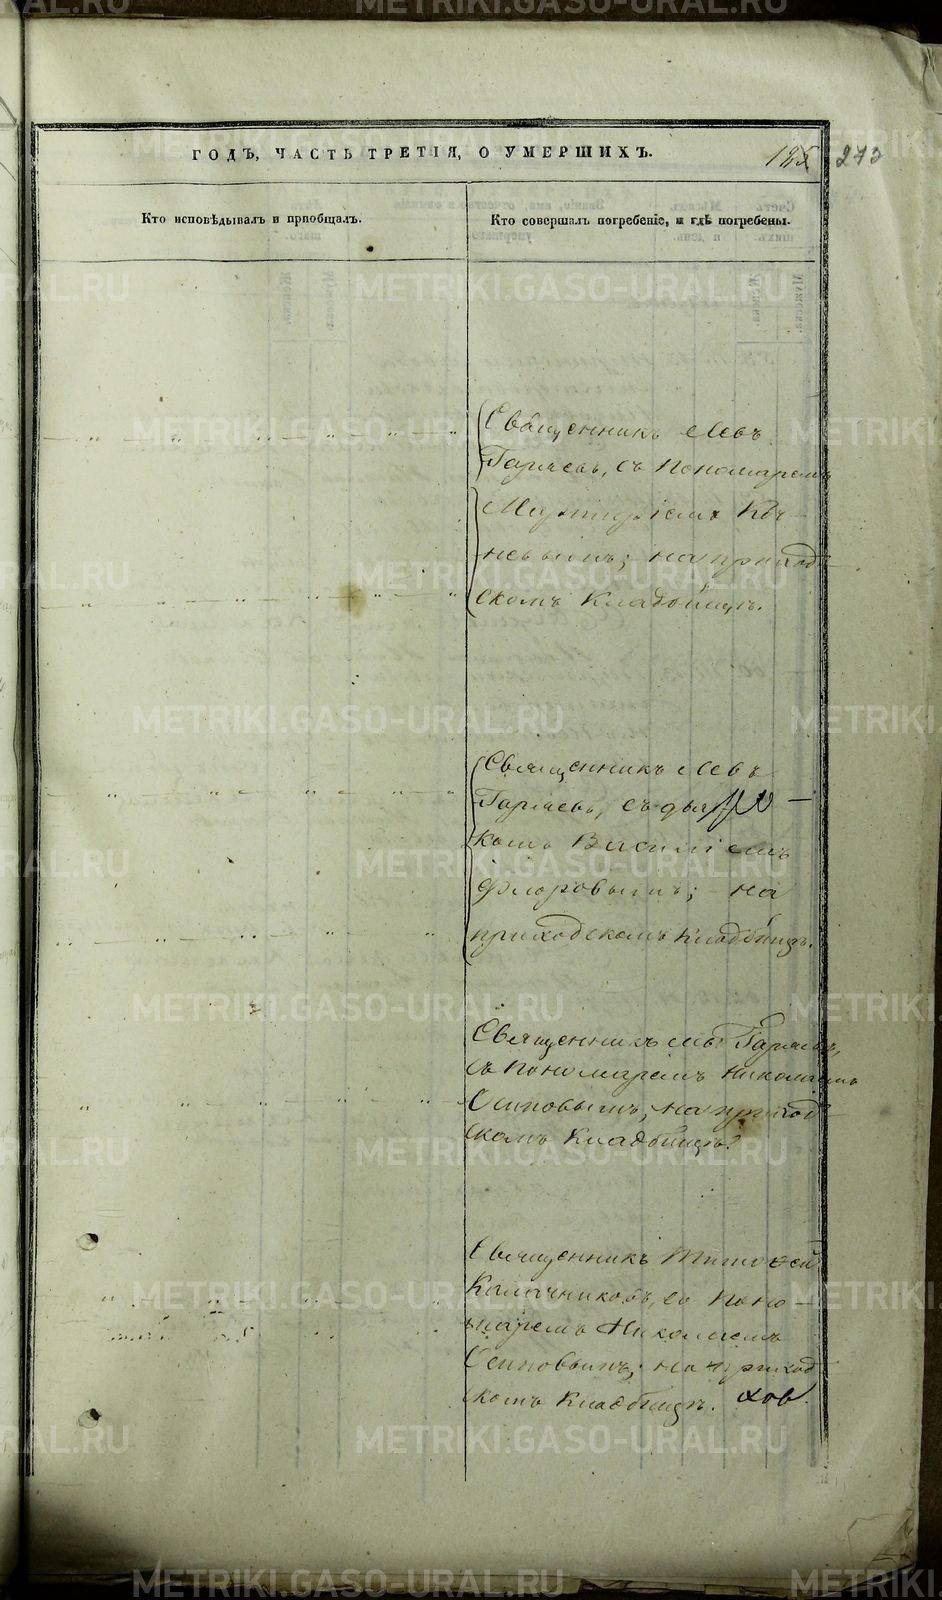 ГОДЪ, ЧАСТЬ ТРЕТІЯ, О УМЕРШИХЪ.
273
Кто исповѣдывалъ и пріобщалъ.
Кто совершалъ погребеніе, и гдѣ погребены.
Священникъ Левъ
Гаряевъ, съ Пономаремъ
на приход
скомъ Кладбищѣ.
Священникъ Левъ
Гаряевъ, съ дья
комъ Василіемъ
Флоровымъ; на
приходскомъ Кладбищѣ.
Священникъ Левъ Гаряевъ,
съ Пономаремъ Николаемъ
Осиповымъ, на приход
скомъ Кладбищѣ.
Священникъ Тимофей
Калачниковъ, со Поно
маремъ Николаемъ
Осиповымъ; на приход
скомъ Кладбищѣ. хов.
METRIKI.GASO-URAL.RU